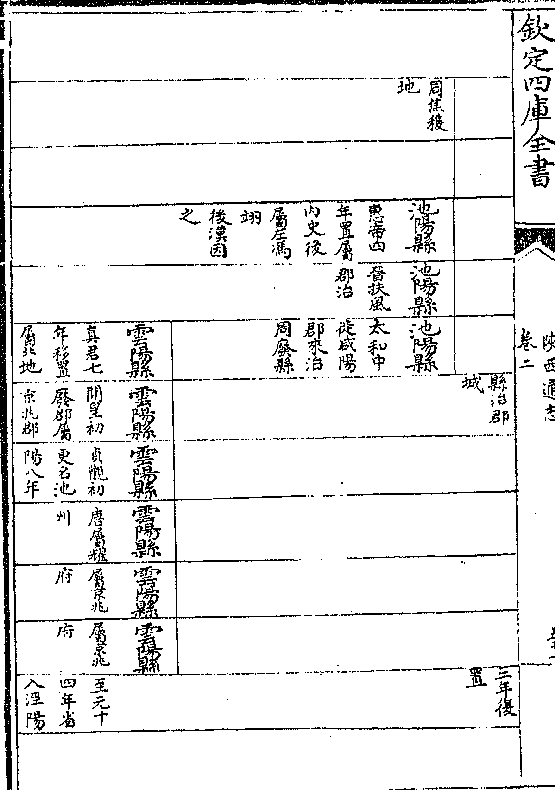 欽定四庫全書
陝西通志
卷二
周焦穫
地
池陽縣
惠帝四
年置屬
内史後
屬左馮
翊
後漢因
之
池陽縣
晉扶風
郡治
池陽縣
太和中
徙咸陽
郡來治
周廢縣
縣治郡
城
三年復
置
雲陽縣
真君七
年移置
屬北地
雲陽縣
開皇初
廢郡屬
京兆郡
雲陽縣
貞觀初
更名池
陽八年
雲陽縣
唐屬耀
州
雲陽縣
屬京兆
府
雲陽縣
屬京兆
府
至元十
四年省
入涇陽